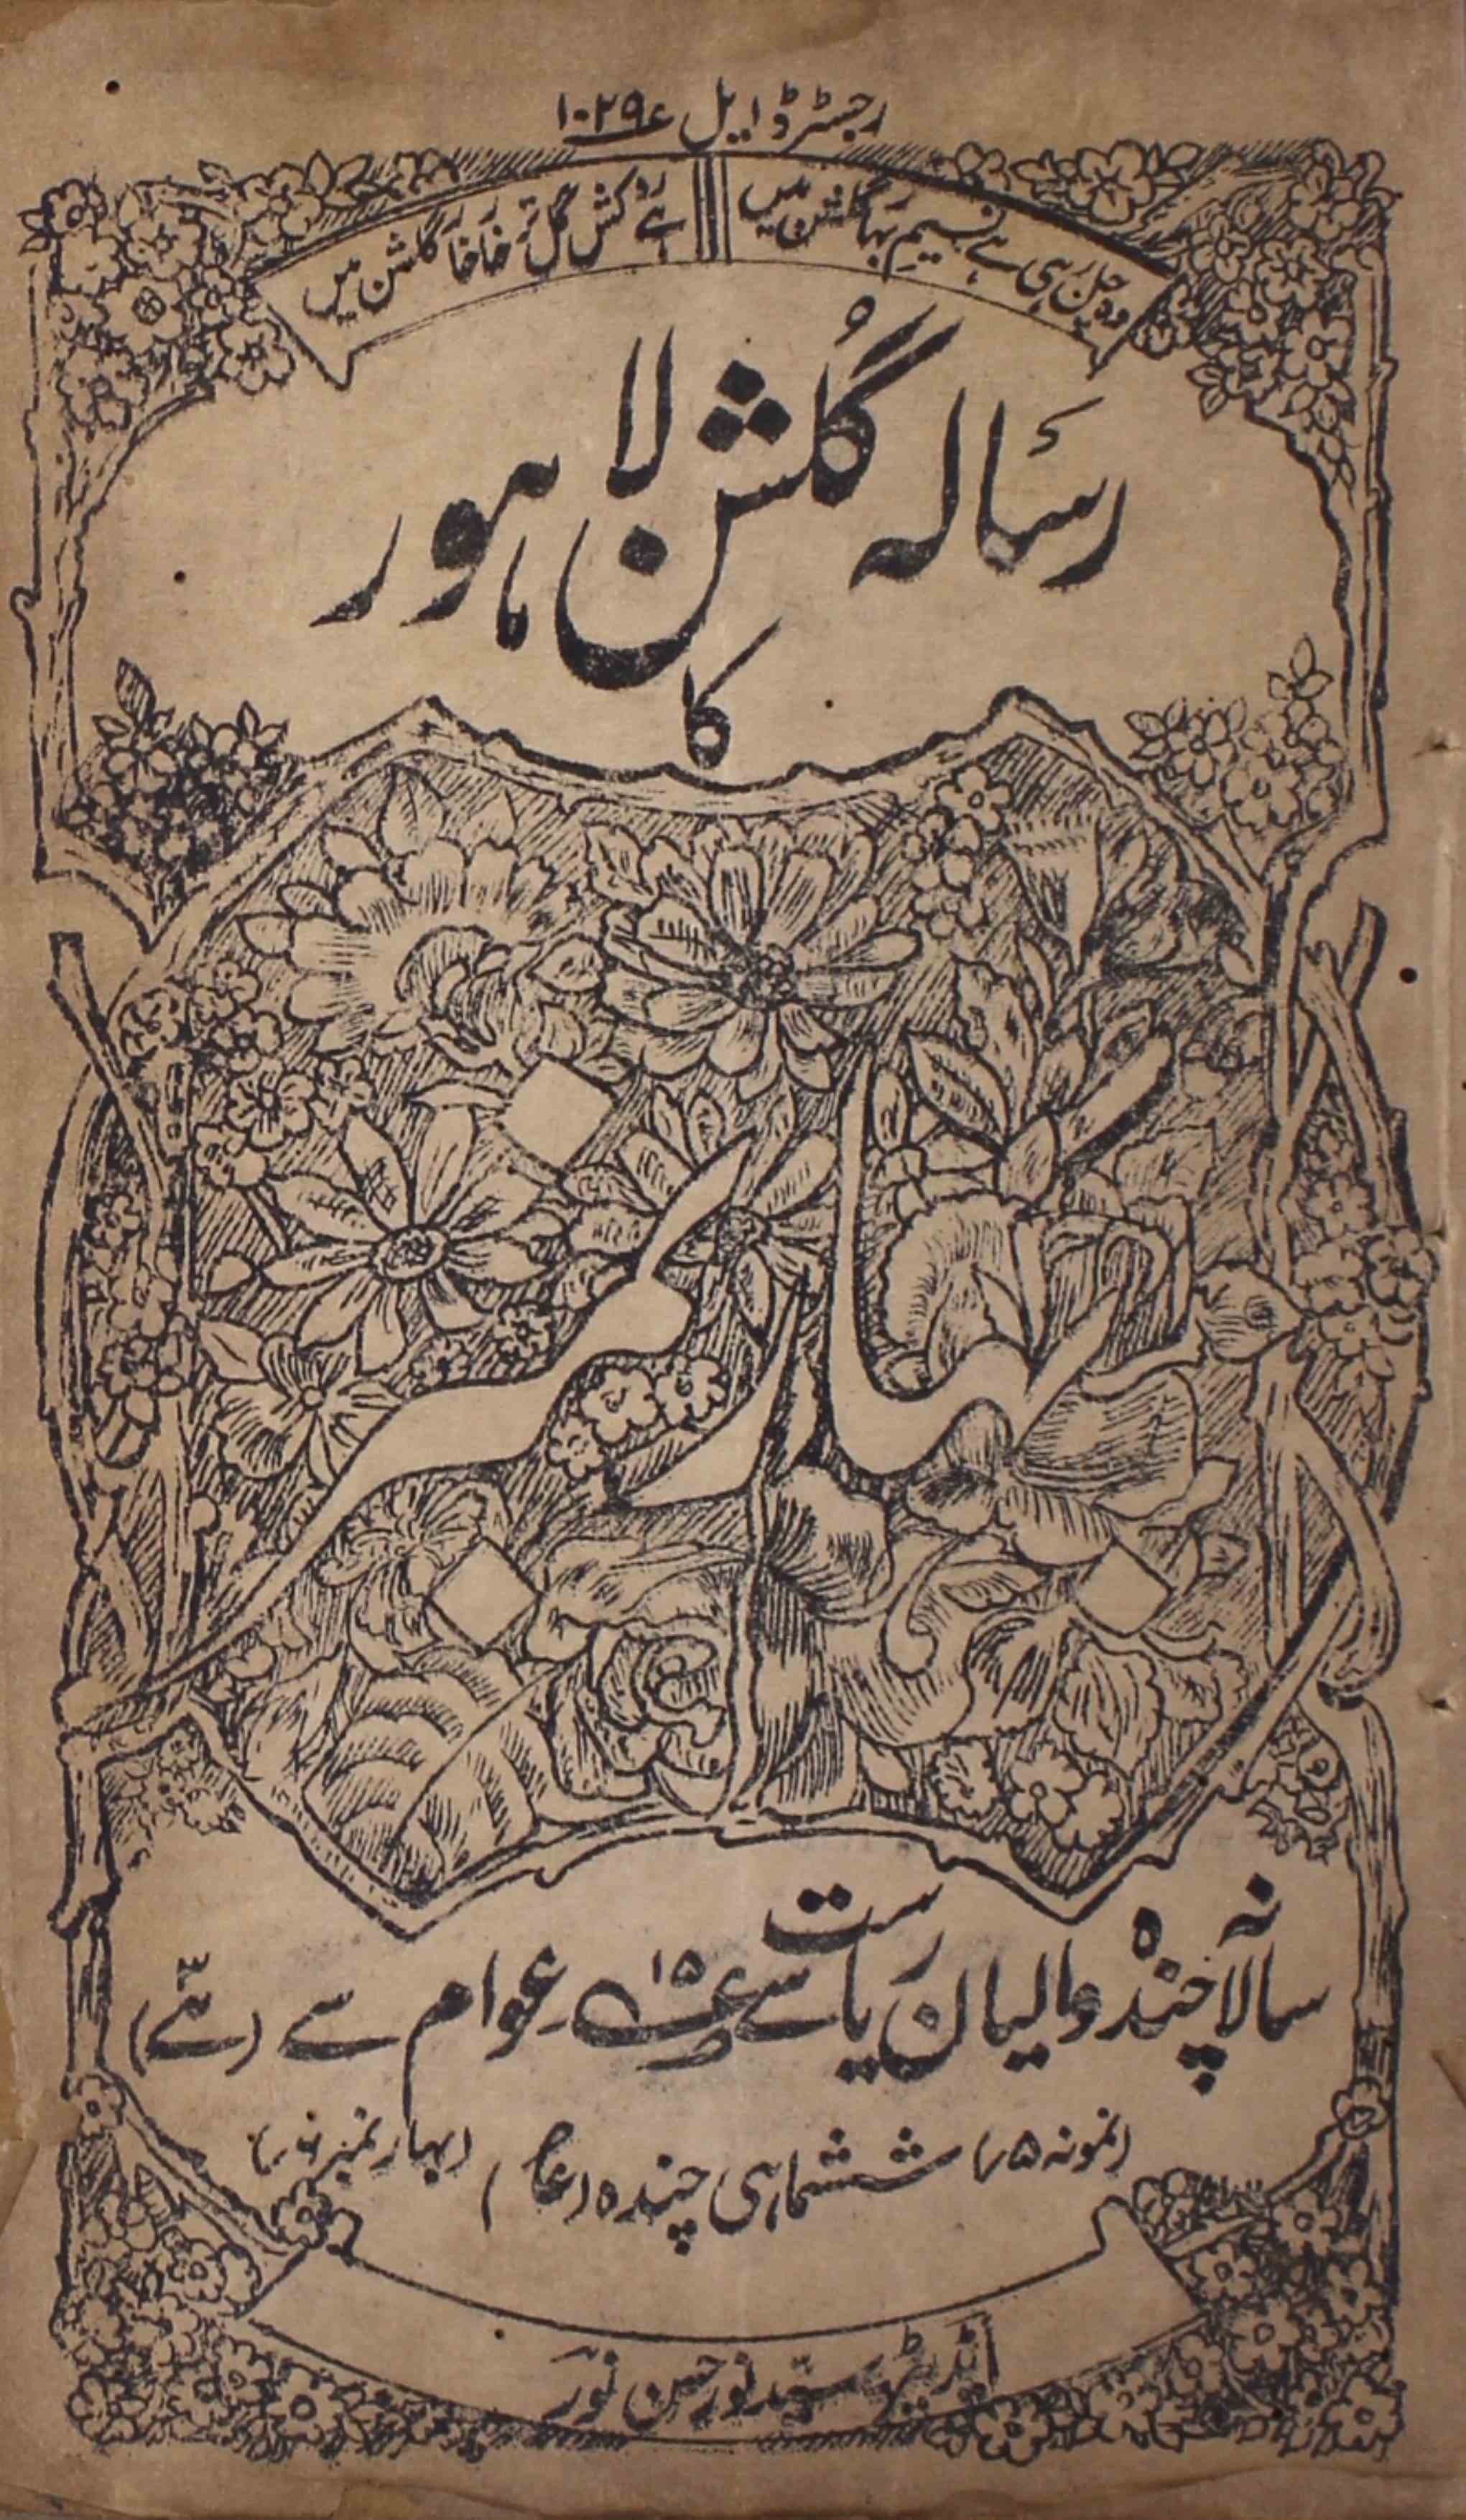 رجسٹرڈ ایل ۱۰۲۹
وہ چل رہی ہے نسیم بہار گلشن میں
ہے رو کش گل تر خار خار گلشن میں
رسالہ گُلشن لاہور
کا
بہار نمبر
سالانہ چندہ والیان ریاست سے ۱۵ عوام سے
(نمونہ ۵؍) ششماہی چندہ (بہار نمبر
ایڈیٹر سید نور حسن نور